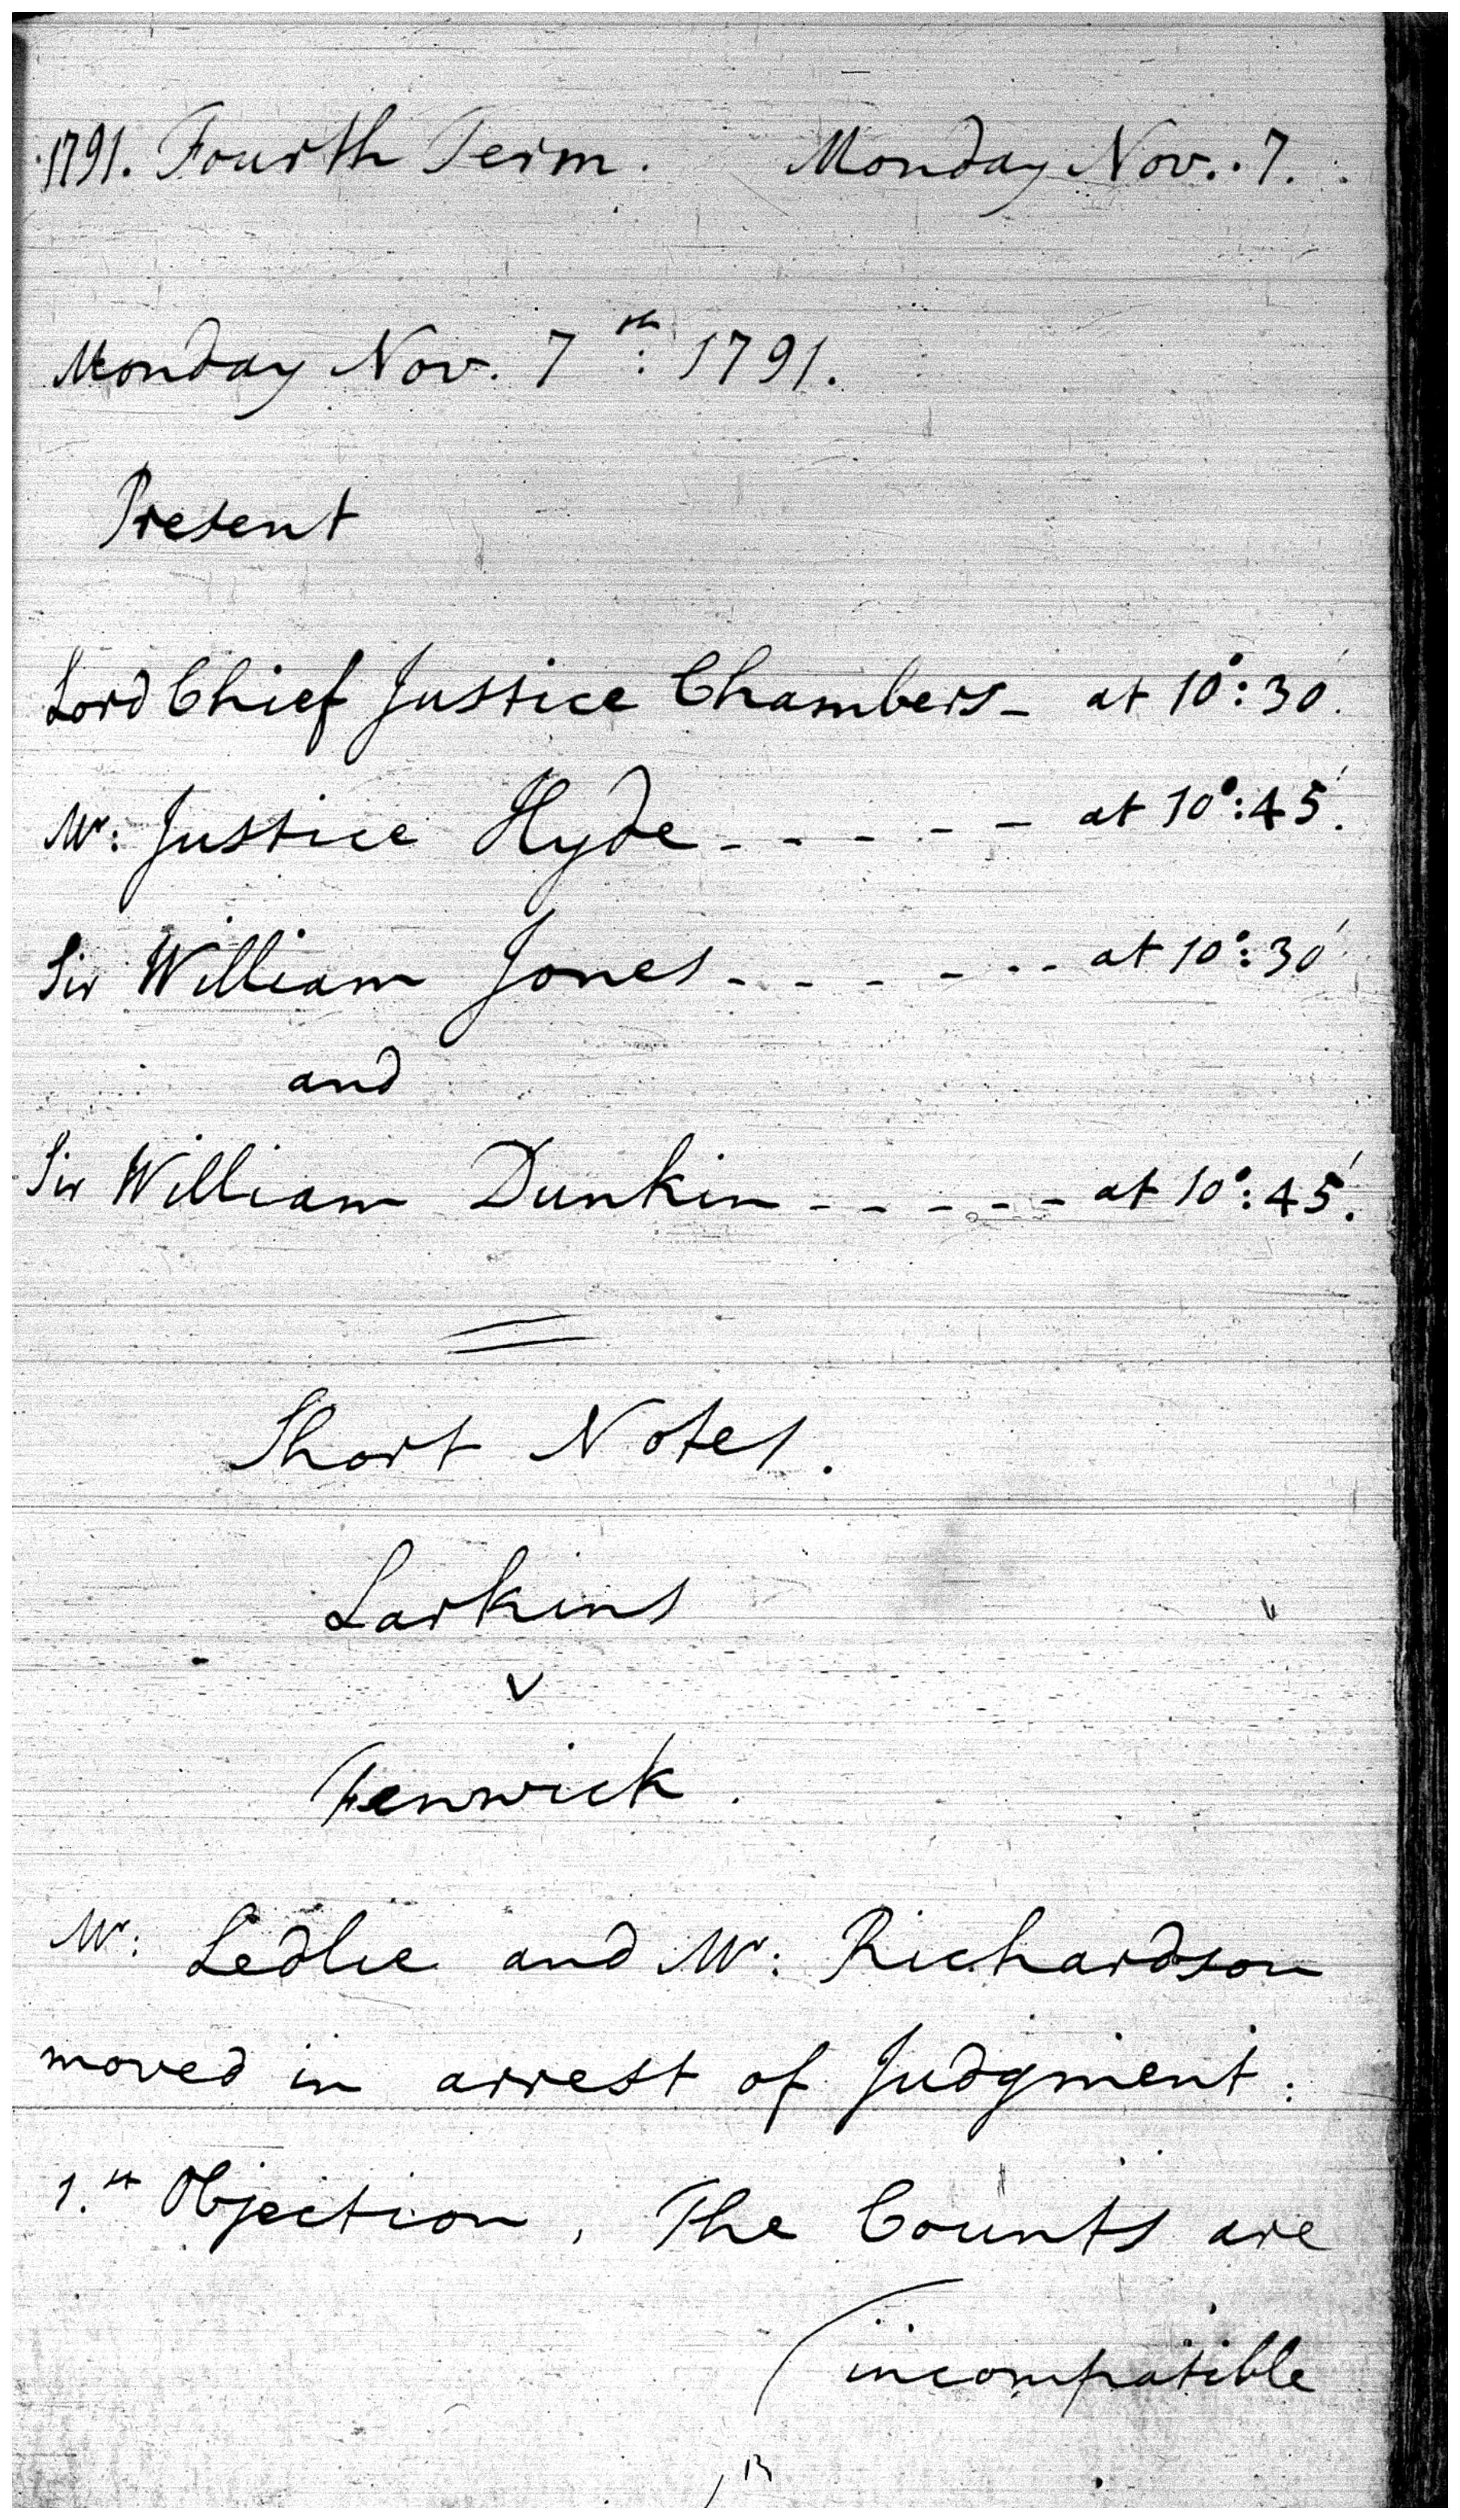 1791. Fourth Term. Monday Nov. 7.
Monday Nov. 7th: 1791.
Present
Lord Chief Justice Chambers - at 10°: 30'.
Mr: Justice Hyde - - - - - at 10°: 45'.
Sir William Jones - - - - - - at 10°: 30'
and
Sir William Dunkin - - - - - at 10°: 45'.
Short Notes.
Larkins
v
Fenwick.
Mr: Ledlie and Mr: Richardson
moved in arrest of Judgment.
1.st Objection, The Counts are
incompatible